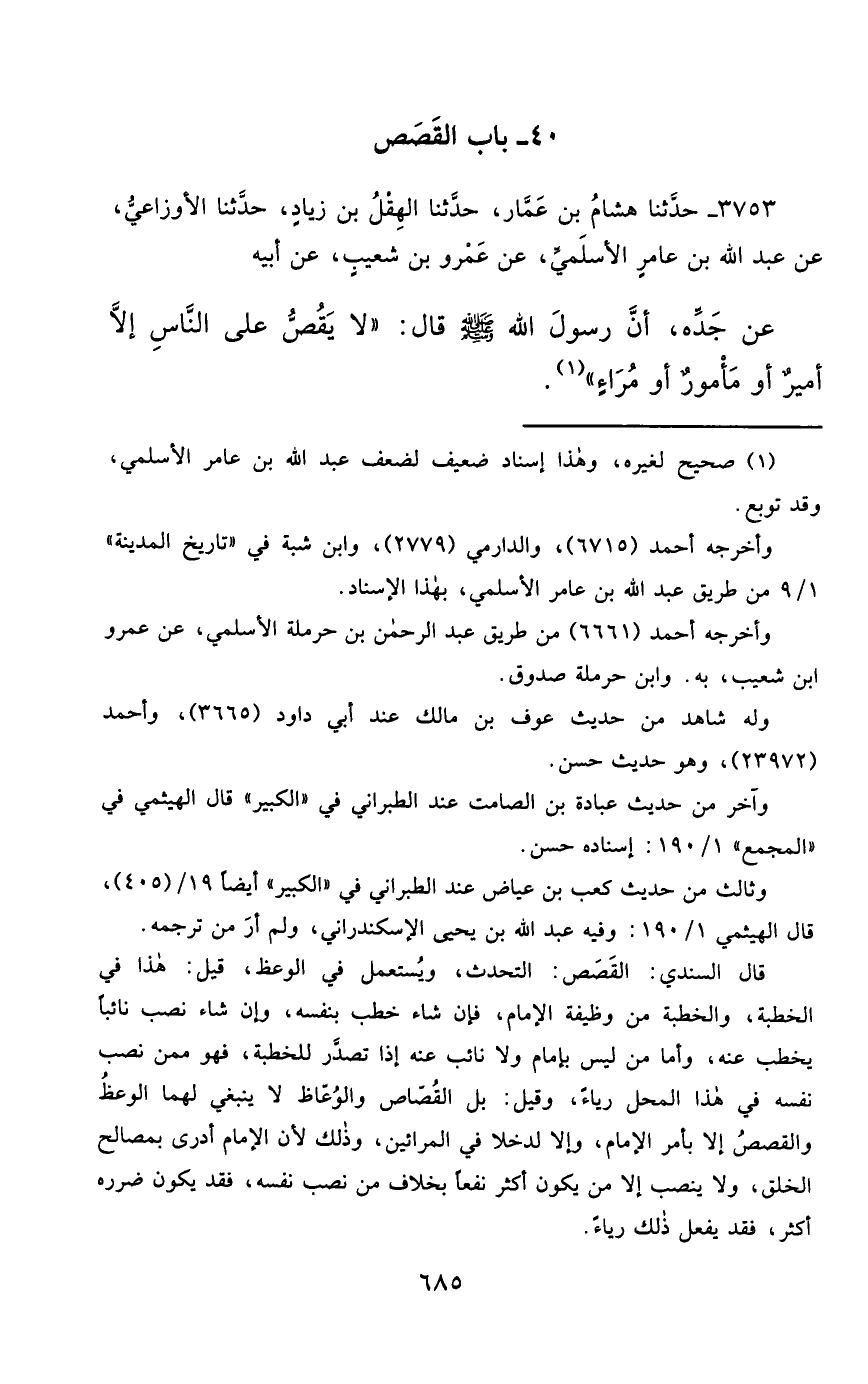 ٤٠ـ باب القَصَص
٣٧٥٣ـ حدَّثنا هشامُ بن عَمَّار، حدَّثنا الهِقْلُ بن زيادٍ، حدَّثنا الأوزاعيُّ،
عن عبد الله بن عامرٍ الأسلَميِّ، عن عَمْرو بن شعيبٍ، عن أبيه
عن جَدِّه، أنَّ رسولَ الله ﷺ قال: «لا يَقُصُّ على النَّاسِ إلاَّ
أميرٌ أو مَأْمورٌ أو مُرَاءٍ»(١).
(١) صحيح لغيره، وهٰذا إسناد ضعيف لضعف عبد الله بن عامر الأسلمي،
وقد توبع.
وأخرجه أحمد (٦٧١٥)، والدارمي (٢٧٧٩)، وابن شبة في «تاريخ المدينة»
٩/١ من طريق عبد الله بن عامر الأسلمي، بهٰذا الإسناد.
وأخرجه أحمد (٦٦٦١) من طريق عبد الرحمٰن بن حرملة الأسلمي، عن عمرو
ابن شعيب، به. وابن حرملة صدوق.
وله شاهد من حديث عوف بن مالك عند أبي داود (٣٦٦٥)، وأحمد
(٢٣٩٧٢)، وهو حديث حسن.
وآخر من حديث عبادة بن الصامت عند الطبراني في «الكبير» قال الهيثمي في
«المجمع» ١٩٠/١: إسناده حسن.
وثالث من حديث كعب بن عياض عند الطبراني في «الكبير» أيضاً ١٩/(٤٠٥)،
قال الهيثمي ١٩٠/١: وفيه عبد الله بن يحيى الإسكندراني، ولم أرَ من ترجمه.
قال السندي: القَصَص: التحدث، ويُستعمل في الوعظ، قيل: هٰذا في
الخطبة، والخطبة من وظيفة الإمام، فإن شاء خطب بنفسه، وإن شاء نصب نائباً
يخطب عنه، وأما من ليس بإمام ولا نائب عنه إذا تصدَّر للخطبة، فهو ممن نصب
نفسه في هٰذا المحل رياءً، وقيل: بل القُصّاص والوُعّاظ لا ينبغي لهما الوعظُ
والقصصُ إلا بأمر الإمام، وإلا لدخلا في المرائين، وذٰلك لأن الإمام أدرى بمصالح
الخلق، ولا ينصب إلا من يكون أكثر نفعاً بخلاف من نصب نفسه، فقد يكون ضرره
أكثر، فقد يفعل ذٰلك رياءً.
٦٨٥